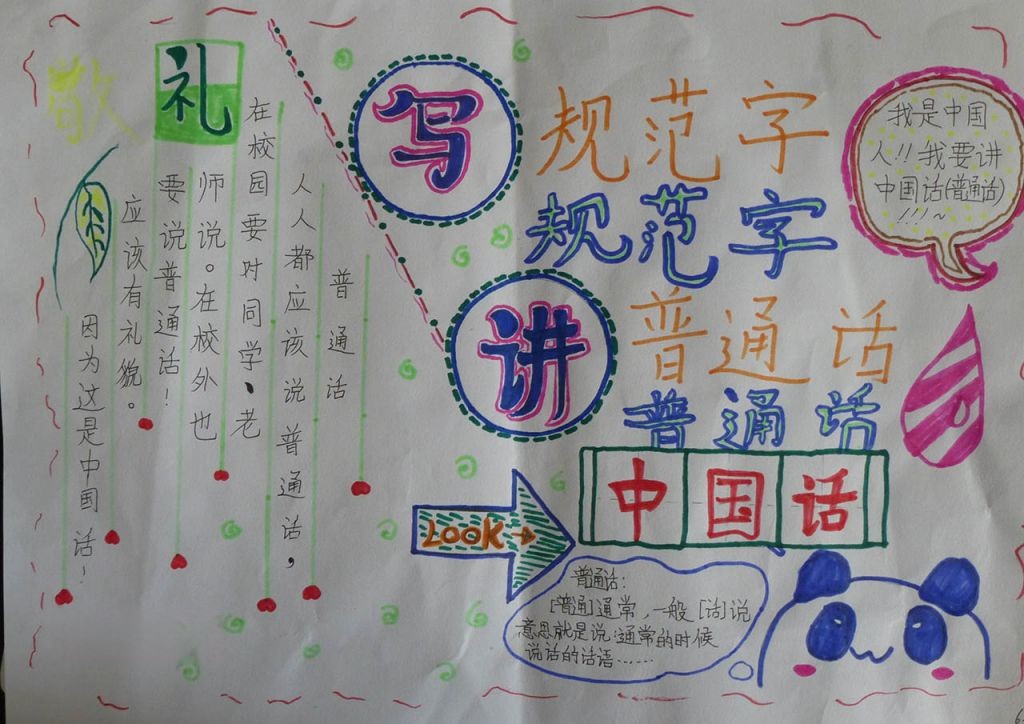 敬礼
普通话
人人都应该说普通话,
在校园要对同学、老
师说。在校外也
要说普通话!
应该有礼貌。
因为这是中国话!
写规范字
规范字
讲普通话
普通话
中国话
LOOK→
我是中国
人!!我要讲
中国话(普通话)
!!!~
普通话:
[普通]通常,一般[话]说
意思就是说:通常的时候
说话的话语……